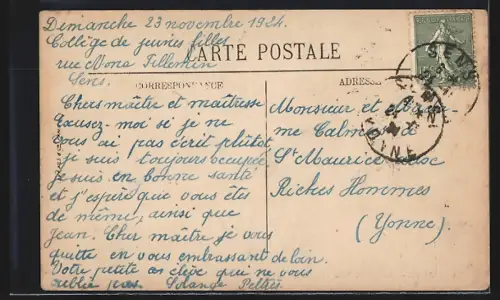 Dimanche 23 novembre 1924.
Collège de jeunes filles
rue
Sens.
CARTE POSTALE
CORRESPONDANCE
ADRESSE
Chers maître et maîtresse
Excusez-moi si je ne
vous ai pas écrit plutôt
je suis toujours occupée
Je suis en bonne santé
et j'espère que vous êtes
de même, ainsi que
Jean. Cher maître je vous
quitte en vous embrassant de loin.
Votre petite élève qui ne vous
oublie pas. Solange
Monsieur et
me
St Maurice
Riches Hommes
(Yonne)
SENS
YONNE